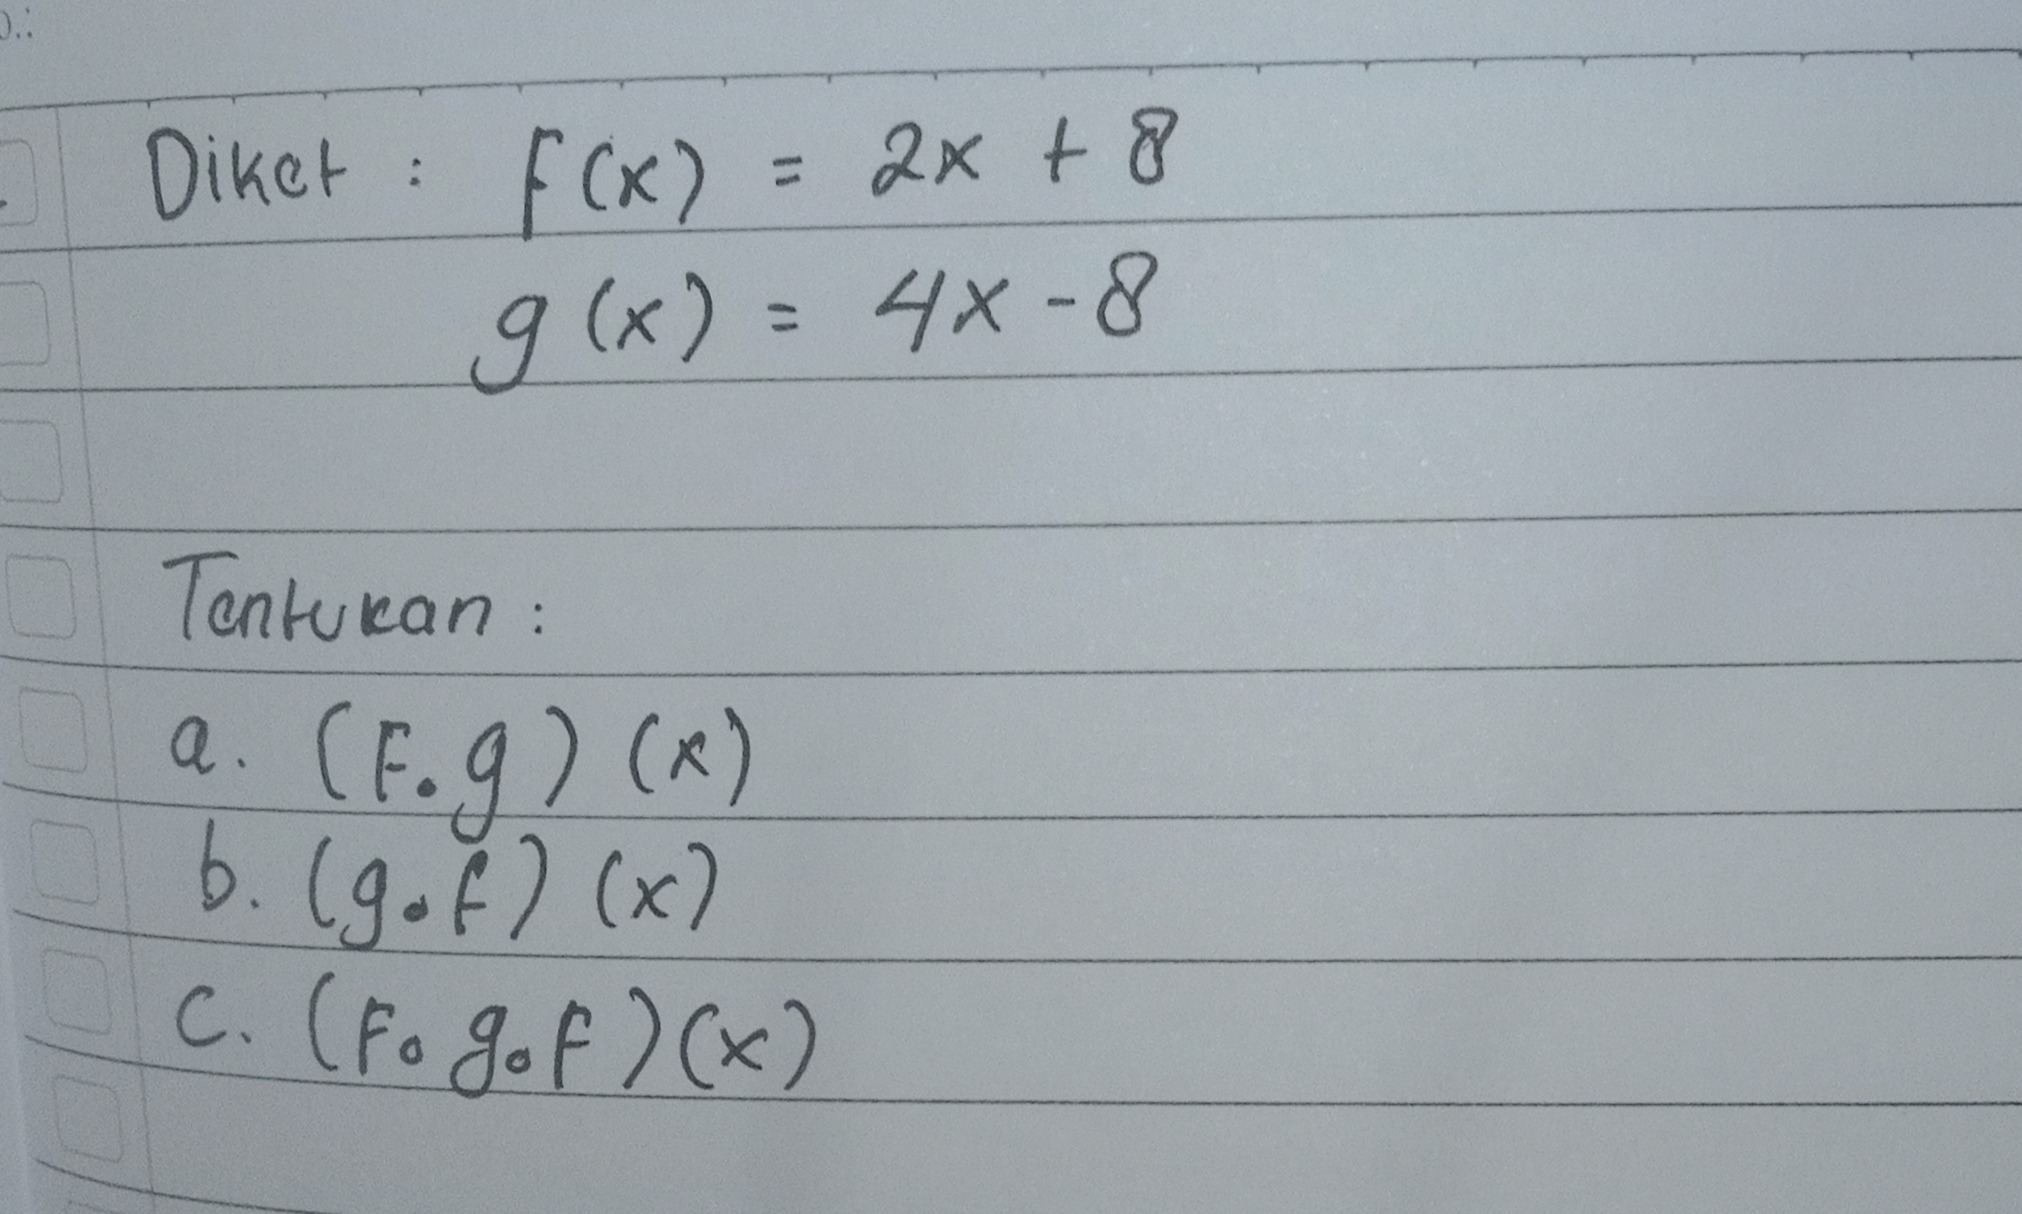 Diket : f(x) = 2x + 8
g(x) = 4x - 8
Tentukan :
a. (F∘g) (x)
b. (g∘f) (x)
c. (F∘g∘F)(x)